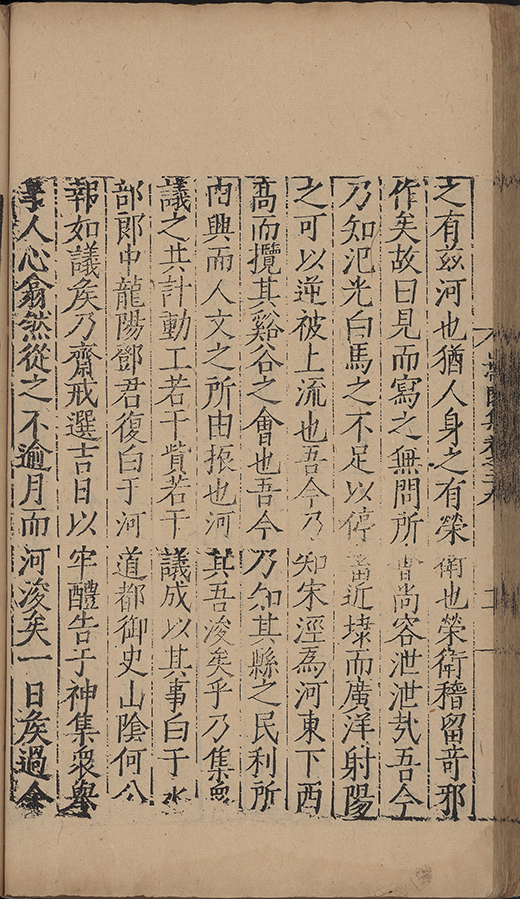 之有茲河也猶人身之有榮衛也榮衛稽留竒邪
作矣故曰見而寫之無問所㑹尚容泄泄㢤吾今
乃知汜光白馬之不足以停畜近壖而廣洋射陽
之可以逆被上流也吾今乃知宋涇爲河東下西
髙而攬其谿谷之㑹也吾今乃知其縣之民利所
内興而人文之所由振也河其吾浚矣乎乃集衆
議之共計動工若干貲若干議成以其事白于水
部郎中龍陽鄧君復白于河道都御史山陰何公
報如議矦乃齋戒選吉日以牢醴告于神集衆舉
事人心翕然從之不逾月而河浚矣一日矦過余